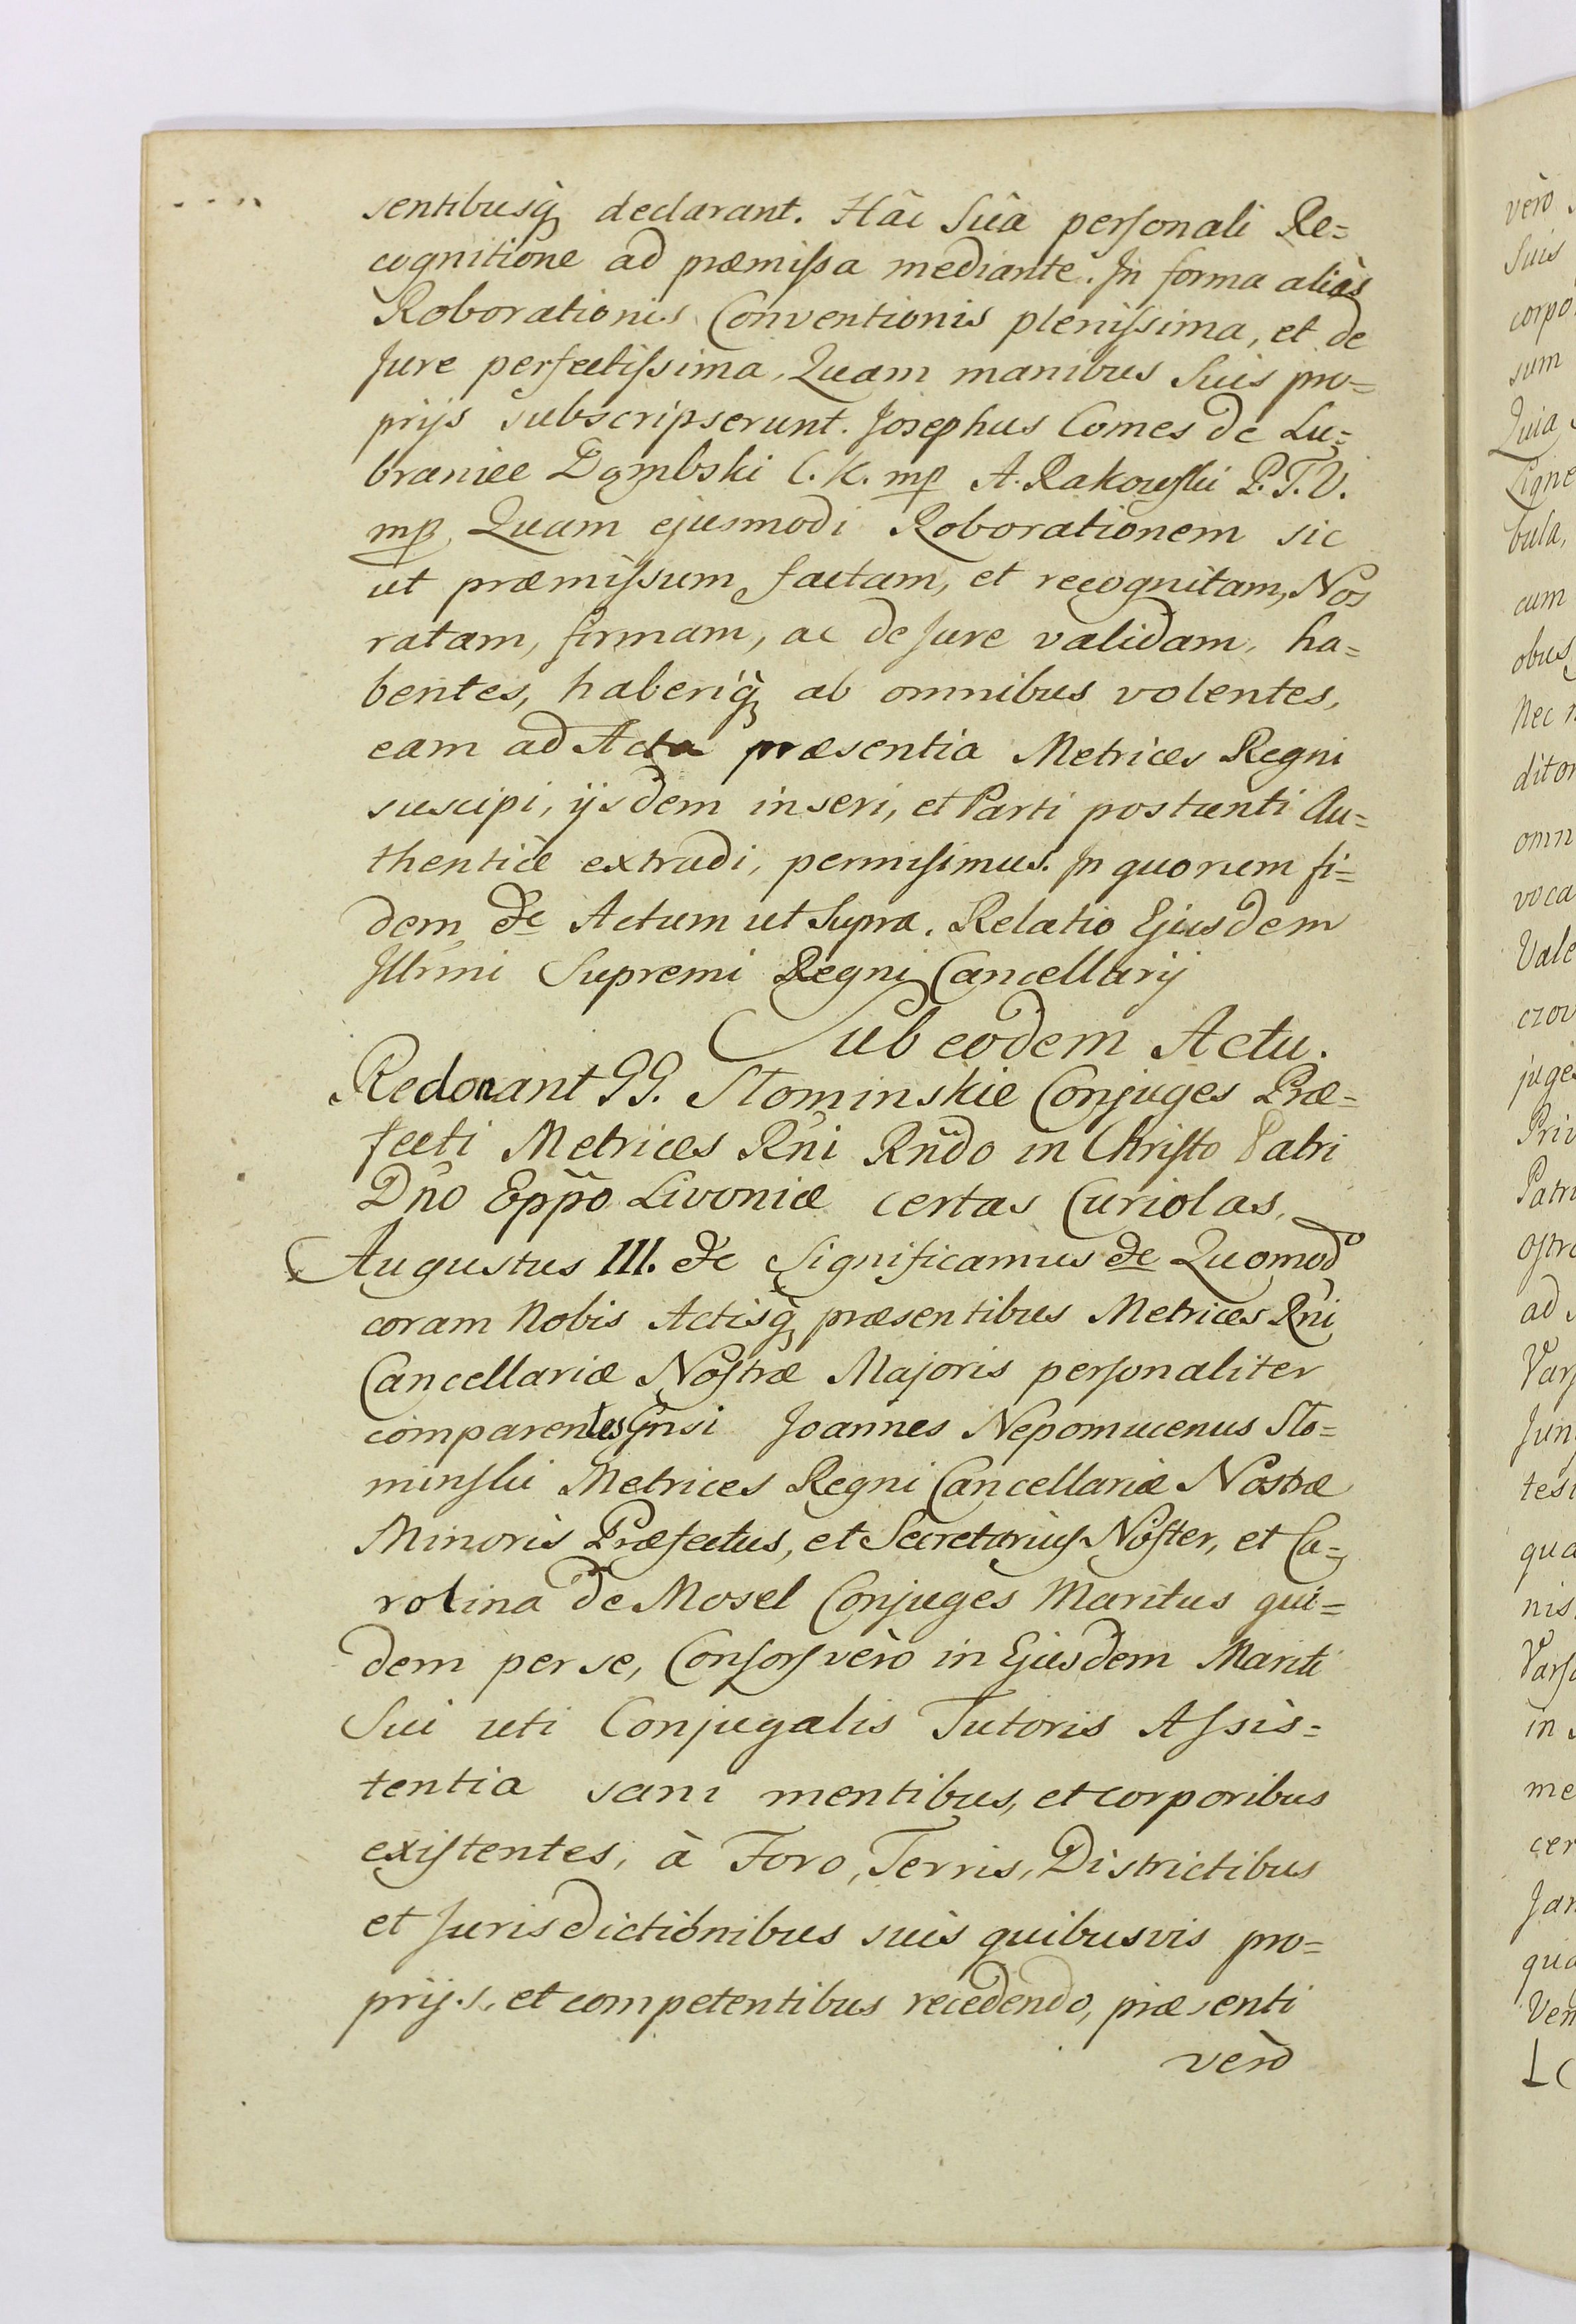 sentibusq̀ declarant. Hâc Suâ personali Re=
cognitione ad præmissa mediante. In forma aliàs
Roborationis Conventionis plenissima, et de
Jure perfectissima, Quam manibus Suis pro=
prijs subscripserunt. Josephus Comes de Lu=
braniec Dąmbski C. K. mp A. Rakowski P. T. V.
mp, Quam ejusmodi Roborationem sic
ut præmissum, factam, et recognitam, Nos
ratam, firmam, ac de Jure validam, ha=
bentes, haberiq̀ ab omnibus volentes,
eam ad Acta præsentia Metrices Regni
suscipi, ijsdem inseri, et Parti postunti Au=
thenticè extradi, permisimus. In quorum fi=
dem &c Actum ut Supra. Relatio Ejusdem
Illrmi Supremi Regni Cancellarij
Sub eodem Actu.
Redonant GG. Słominskie Conjuges Præ=
fecti Metrices Rñi Rñdo in Christo Patri
Dño Eppo Livoniæ certas Curiolas,
Augustus III. &c Significamus &c Quomodo
coram Nobis Actisq̀ præsentibus Metrices Rñi
Cancellariæ Nostræ Majoris personaliter
comparentes Gñsi Joannes Nepomucenus Sło=
minski Metrices Regni Cancellariæ Nostræ
Minoris Præfectus, et Secretarius Noster, et Ca=
rolina de Mosel Conjuges Maritus qui=
dem per se, Consors vèro in Ejusdem Mariti
Sui uti Conjugalis Tutoris Assis=
tentia sani mentibus, et corporibus
existentes, à Foro, Terris, Districtibus
et Jurisdictionibus suis quibusvis pro=
prijs, et competentibus recedendo, præsenti
vèro
vèro
Suis
corpo
sum
Quia
Ligne
bula,
cum
obus
Nec
ditor
omn
voca
Vale
czov
juges
Priv
Patri
Ostro
ad
Vars
Jun
tesi
qua
nis
Varso
in
me
cer
Jan
qua
Ven